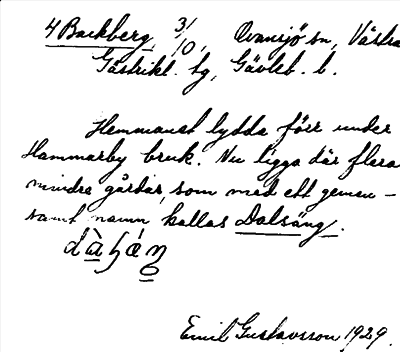 4 Backberg, 3/10, Ovansjö sn, Västra
Gästrikl. tg, Gävleb. l.
Hemmanet lydde förr under
Hammarby bruk. Nu ligga där flera
mindre gårdar, som med ett gemen-
samt namn kallas Dalsäng.
Emil Gustavsson 1929.